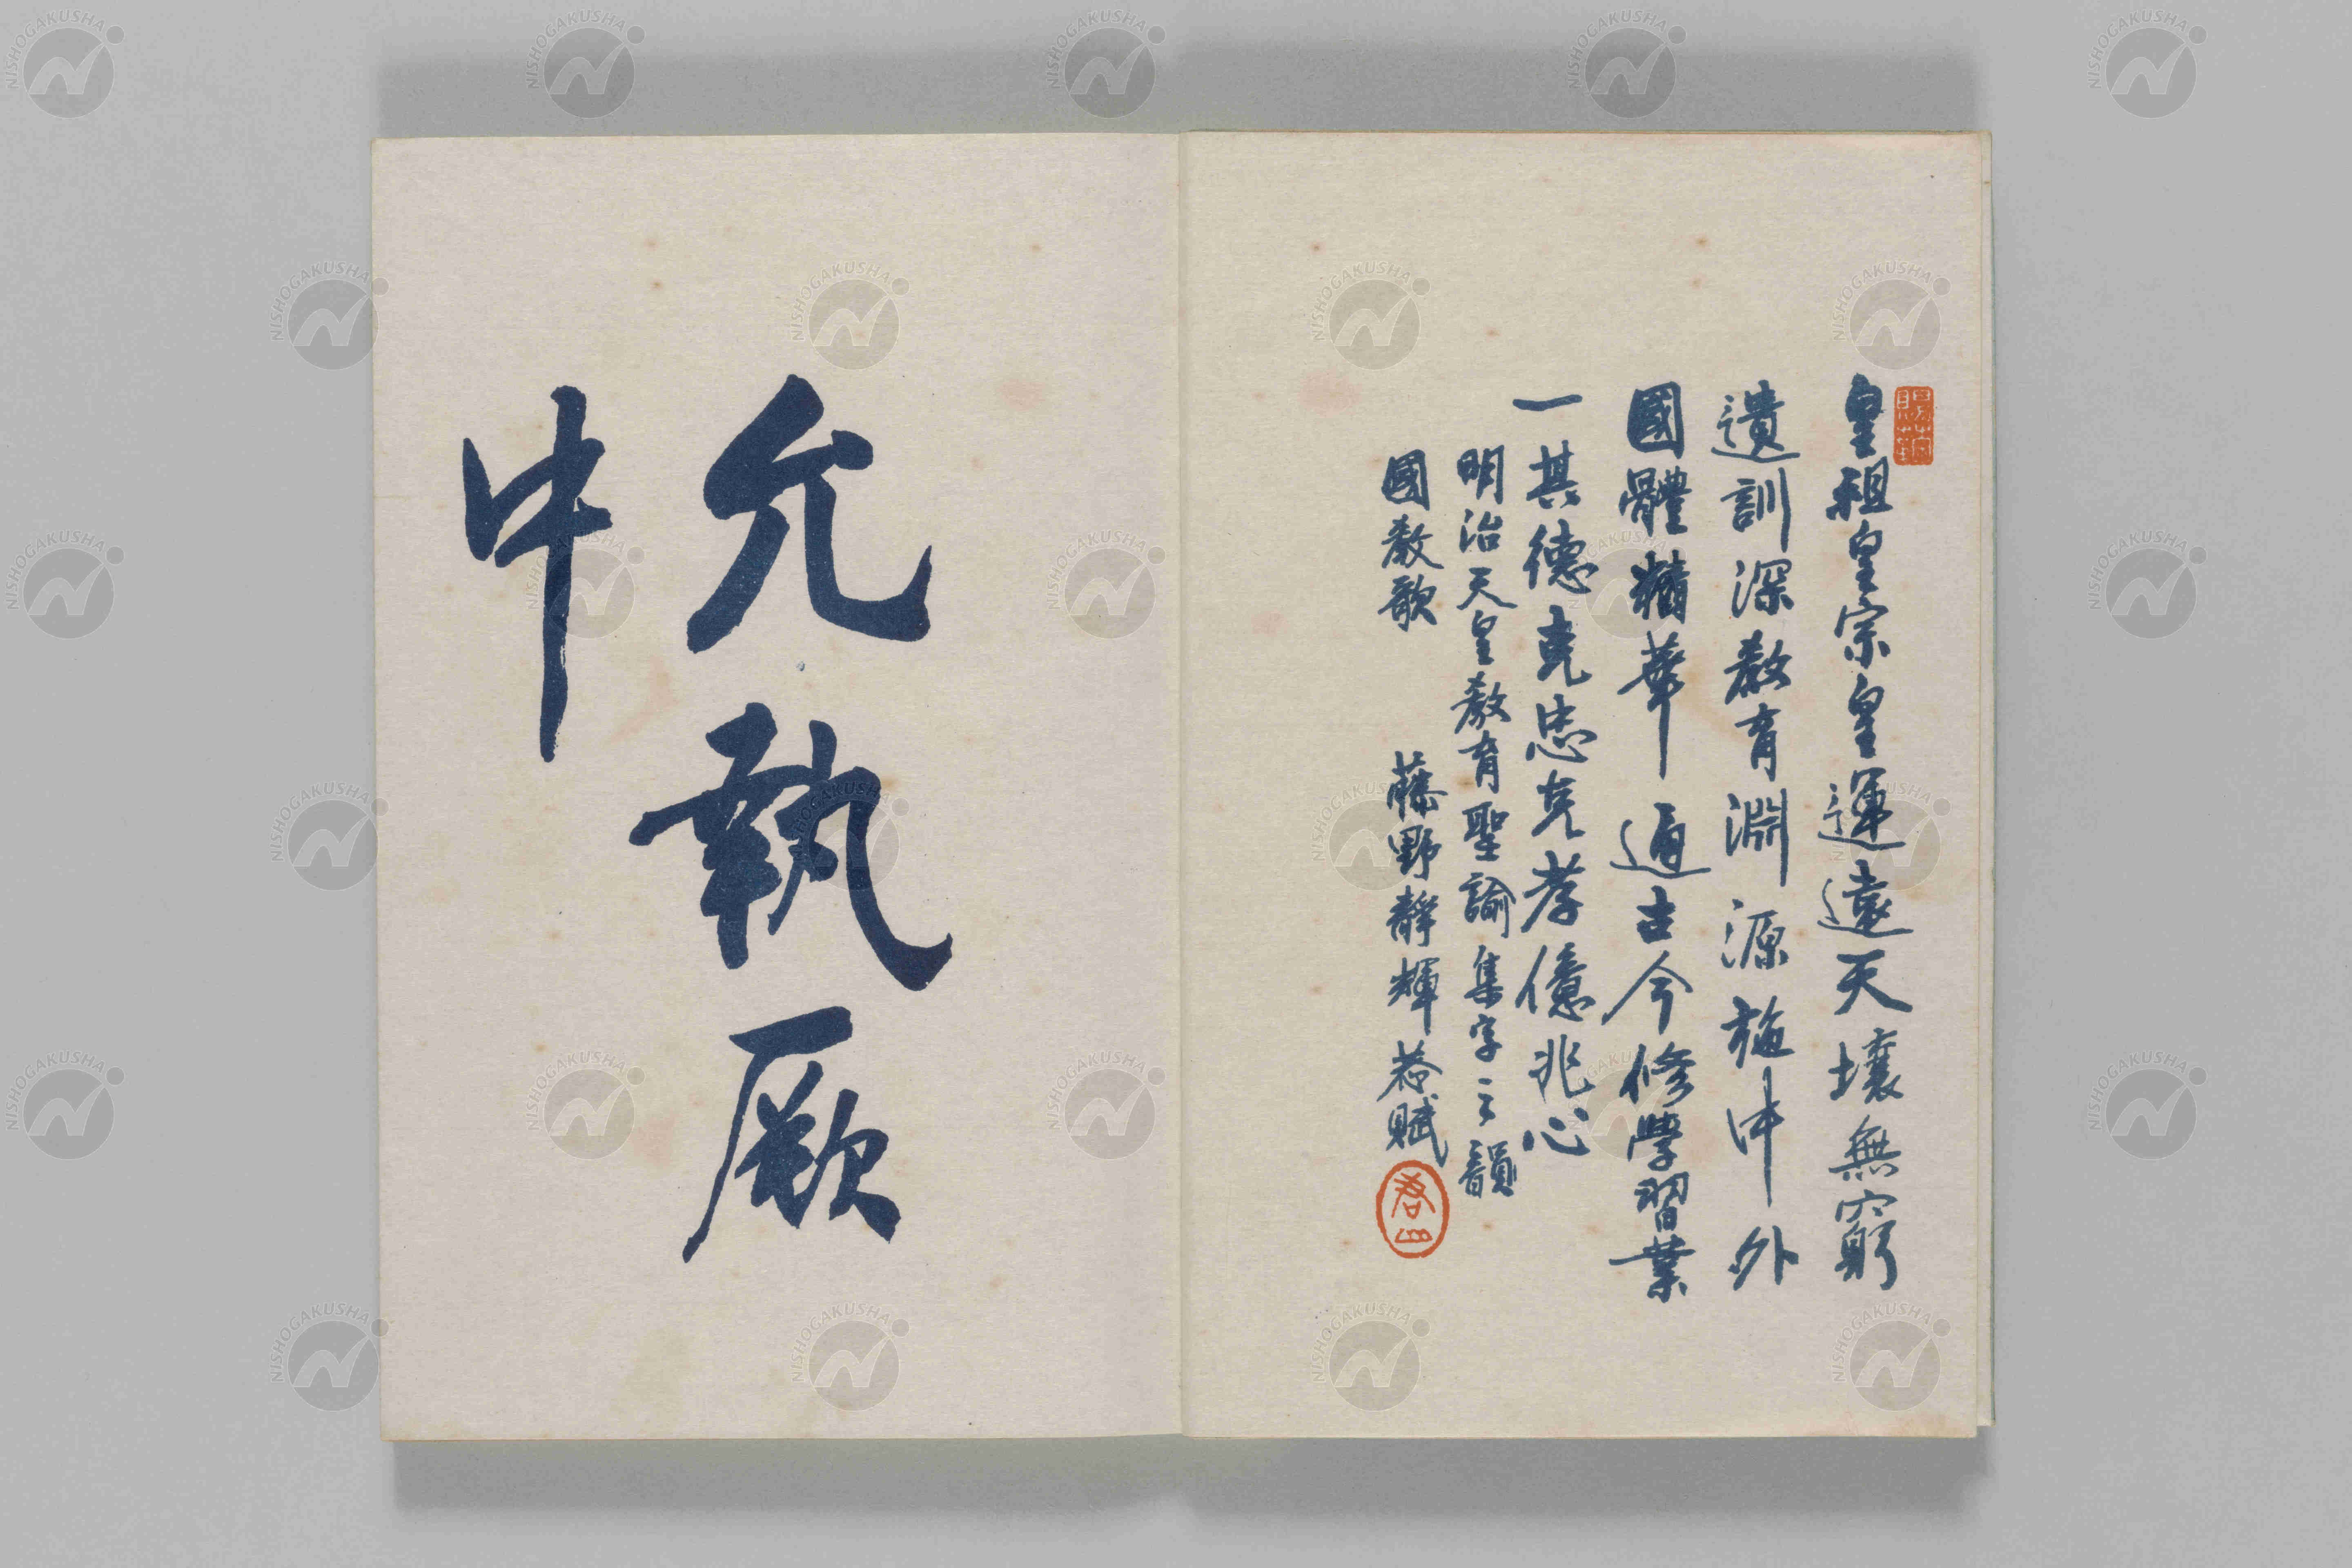 皇祖皇宗皇運遠天壤無窮
遺訓深教育淵源施中外
國體精華通古今修學習業
一其德克忠克孝億兆心
明治天皇教育聖諭集字之韻
國教歌 藤野靜輝恭賦
允執厥
中
NISHOGAKUSHA